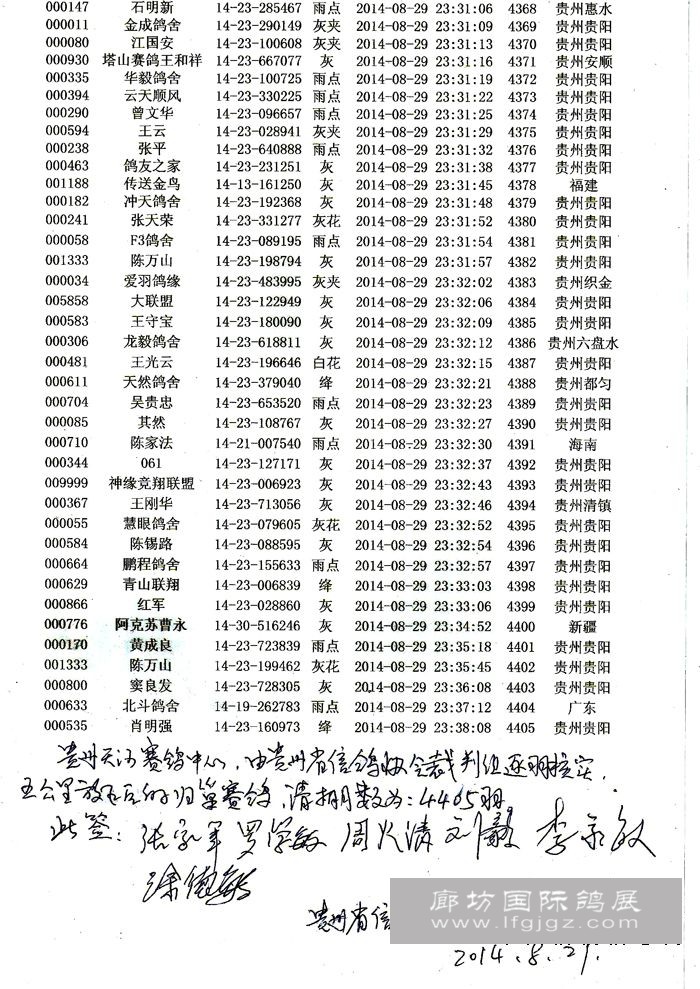 000147 石明新 14-23-285467 雨点 2014-08-29 23:31:06 4368 贵州惠水
000011 金成鸽舍 14-23-290149 灰夹 2014-08-29 23:31:09 4369 贵州贵阳
000080 江国安 14-23-100608 灰夹 2014-08-29 23:31:13 4370 贵州贵阳
000930 塔山赛鸽王和祥 14-23-667077 灰 2014-08-29 23:31:16 4371 贵州安顺
000335 华毅鸽舍 14-23-100725 雨点 2014-08-29 23:31:19 4372 贵州贵阳
000394 云天顺风 14-23-330225 雨点 2014-08-29 23:31:22 4373 贵州贵阳
000290 曾文华 14-23-096657 雨点 2014-08-29 23:31:25 4374 贵州贵阳
000594 王云 14-23-028941 灰夹 2014-08-29 23:31:29 4375 贵州贵阳
000238 张平 14-23-640888 雨点 2014-08-29 23:31:32 4376 贵州贵阳
000463 鸽友之家 14-23-231251 灰 2014-08-29 23:31:38 4377 贵州贵阳
001188 传送金鸟 14-13-161250 灰 2014-08-29 23:31:45 4378 福建
000182 冲天鸽舍 14-23-192368 灰 2014-08-29 23:31:48 4379 贵州贵阳
000241 张天荣 14-23-331277 灰花 2014-08-29 23:31:52 4380 贵州贵阳
000058 F3鸽舍 14-23-089195 雨点 2014-08-29 23:31:54 4381 贵州贵阳
001333 陈万山 14-23-198794 灰 2014-08-29 23:31:57 4382 贵州贵阳
000034 爱羽鸽缘 14-23-483995 灰夹 2014-08-29 23:32:02 4383 贵州织金
005858 大联盟 14-23-122949 灰 2014-08-29 23:32:06 4384 贵州贵阳
000583 王守宝 14-23-180090 灰 2014-08-29 23:32:09 4385 贵州贵阳
000306 龙毅鸽舍 14-23-618811 灰 2014-08-29 23:32:12 4386 贵州六盘水
000481 王光云 14-23-196646 白花 2014-08-29 23:32:15 4387 贵州贵阳
000611 天然鸽舍 14-23-379040 绛 2014-08-29 23:32:21 4388 贵州都匀
000704 吴贵忠 14-23-653520 雨点 2014-08-29 23:32:23 4389 贵州贵阳
000085 其然 14-23-108767 灰 2014-08-29 23:32:27 4390 贵州贵阳
000710 陈家法 14-21-007540 雨点 2014-08-29 23:32:30 4391 海南
000344 061 14-23-127171 灰 2014-08-29 23:32:37 4392 贵州贵阳
009999 神缘竞翔联盟 14-23-006923 灰 2014-08-29 23:32:43 4393 贵州贵阳
000367 王刚华 14-23-713056 灰 2014-08-29 23:32:46 4394 贵州清镇
000055 慧眼鸽舍 14-23-079605 灰花 2014-08-29 23:32:52 4395 贵州贵阳
000584 陈锡路 14-23-088595 灰 2014-08-29 23:32:54 4396 贵州贵阳
000664 鹏程鸽舍 14-23-155633 雨点 2014-08-29 23:32:57 4397 贵州贵阳
000629 青山联翔 14-23-006839 绛 2014-08-29 23:33:03 4398 贵州贵阳
000866 红军 14-23-028860 灰 2014-08-29 23:33:06 4399 贵州贵阳
000776 阿克苏曹永 14-30-516246 灰 2014-08-29 23:34:52 4400 新疆
000170 黄成良 14-23-723839 雨点 2014-08-29 23:35:18 4401 贵州贵阳
001333 陈万山 14-23-199462 灰花 2014-08-29 23:35:45 4402 贵州贵阳
000800 窦良发 14-23-728305 灰 2014-08-29 23:36:08 4403 贵州贵阳
000633 北斗鸽舍 14-19-262783 雨点 2014-08-29 23:37:12 4404 广东
000535 肖明强 14-23-160973 绛 2014-08-29 23:38:08 4405 贵州贵阳
贵州天河赛鸽中心,由贵州省信鸽协会裁判组逐羽核实,
五公里放飞后的归巢赛鸽,清棚数为:4405羽
此签: 张 军 罗 敏 周 刘毅 李
徐德敏
贵州省信
2014.8.29.
廊坊国际鸽展
www.lfgjgz.com